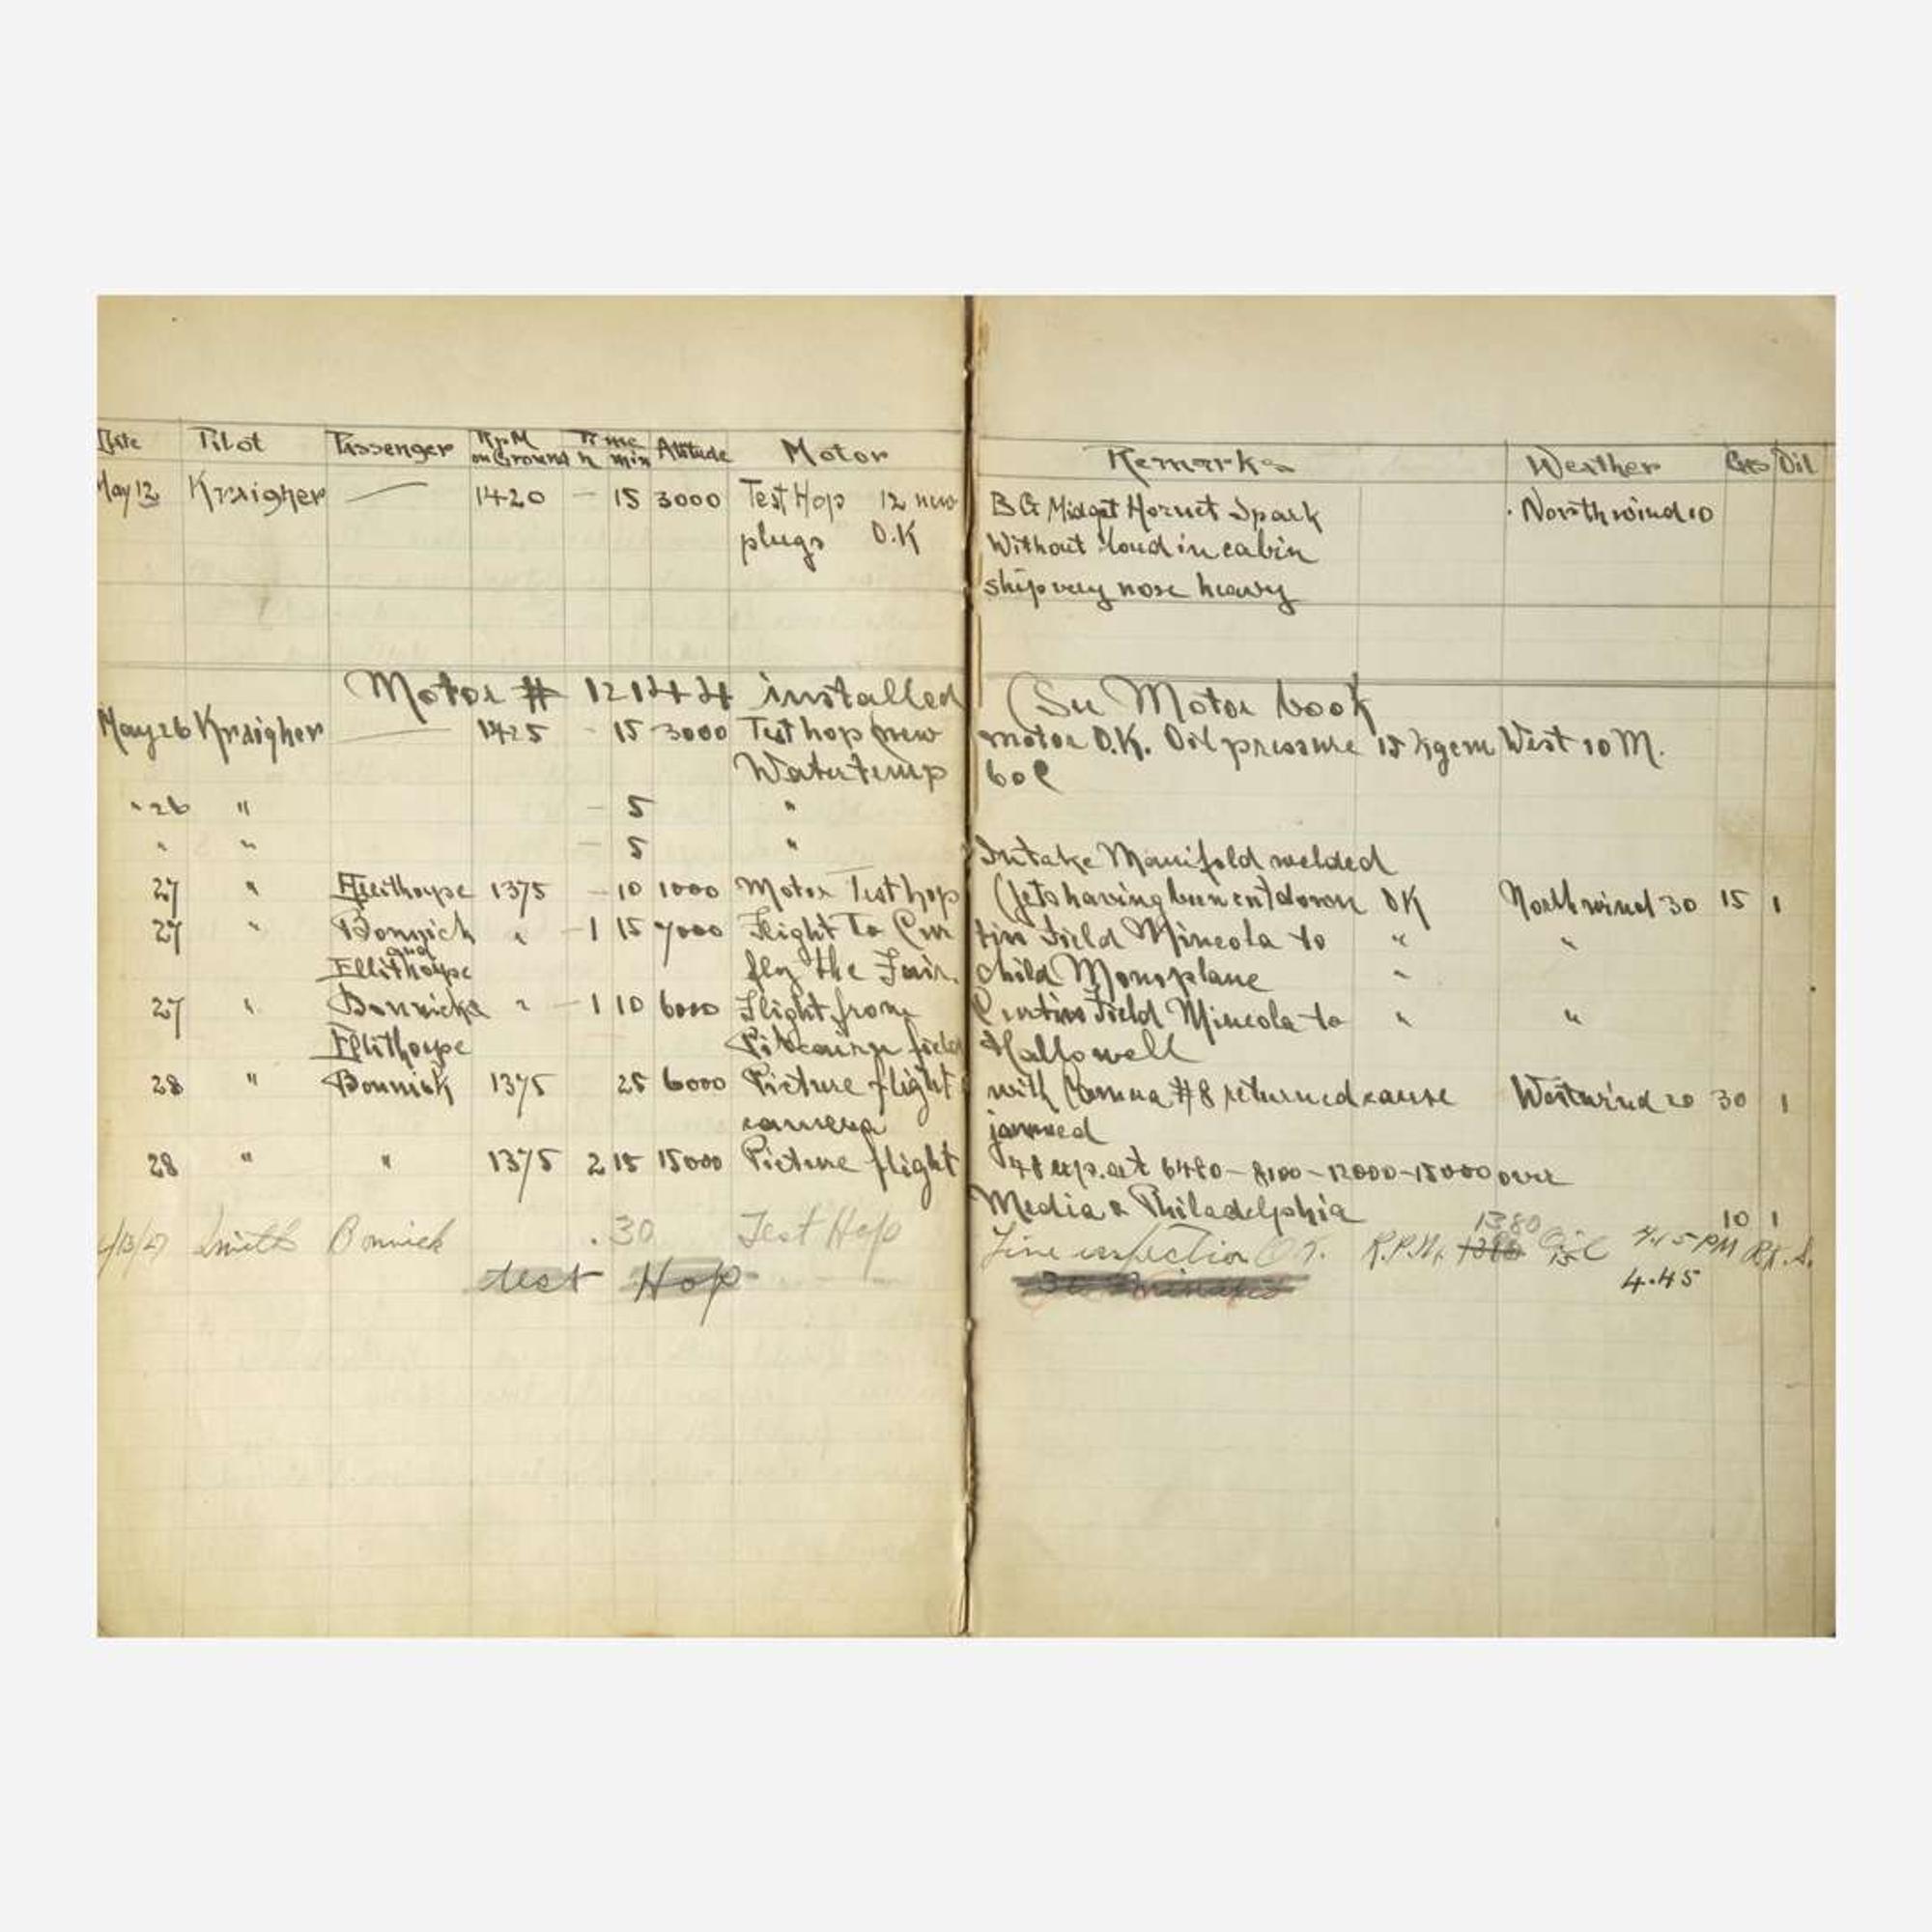 Date Pilot Passenger RpM on Ground Time h min Altitude Motor Remarks Weather Gas Oil
May 12 Kraigher — 1420 - 15 3000 Test Hop 12 new BG Midget Hornet Spark Northwind 10
plugs O.K Without load in cabin
ship very nose heavy
Motor # 12144 installed (See Motor book
May 26 Kraigher — 1425 - 15 3000 Test hop (new motor O.K. Oil pressure 15 kgcm West 10 M.
Water temp 60C
" 26 " - 5 "
" " - 5 " Intake Manifold welded
27 " Ellithorpe 1375 - 10 1000 Motor Test hop (Jets having been cut down OK North wind 30 15 1
27 " Bonnick " - 1 15 7000 Flight To Cur tiss Field Mineola to " "
and
Ellithorpe fly the Fair child Monoplane "
27 " Bonnick & " - 1 10 6000 Flight from Curtiss Field Mineola to " "
Ellithorpe Pitcairn field Hallowell
28 " Bonnick 1375 25 6000 Picture flight with Camera #8 returned cause Westwind 20 30 1
camera jammed
28 " " 1375 2 15 15000 Picture flight 48 exp. at 6480-8100-12000-15000 over
Media & Philadelphia 10 1
Smith Bonnick .30 Test Hop Line inspection O.K. R.P.M. 1380 Oil 4.15 PM
test Hop 4.45